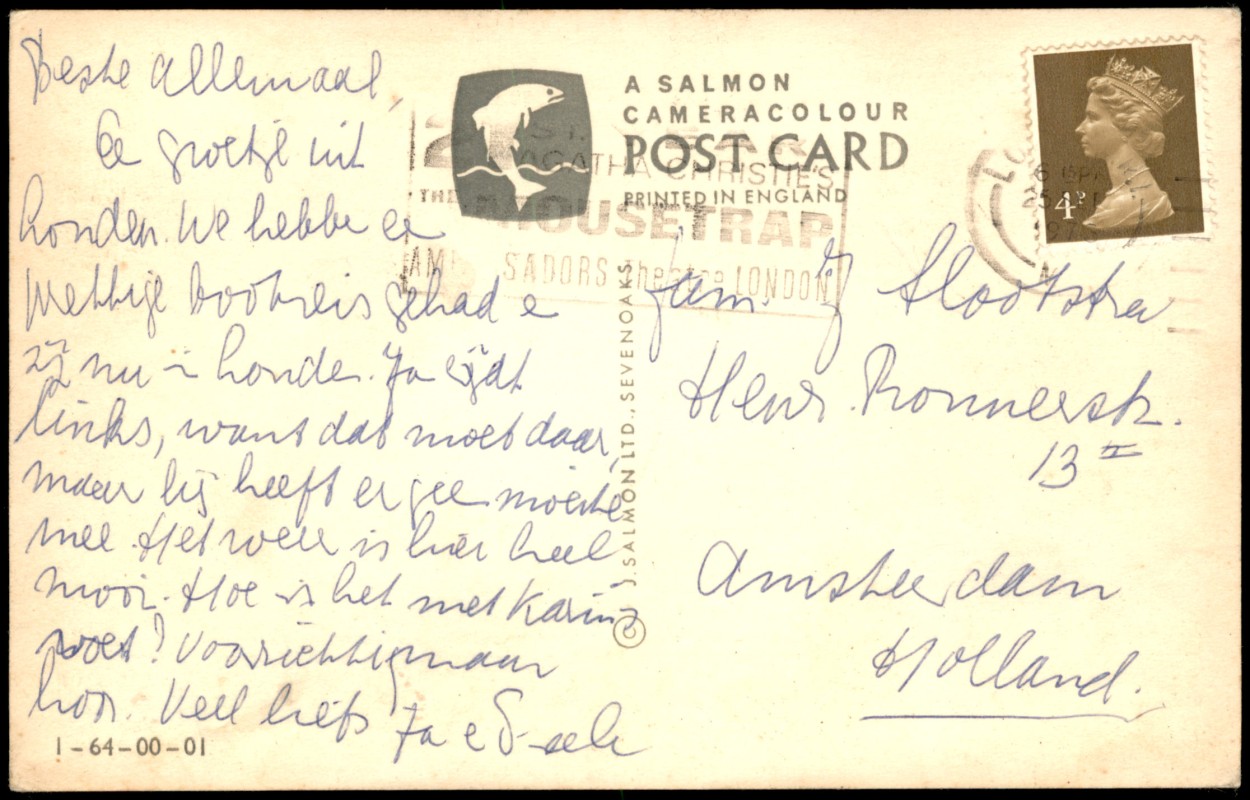 Beste allemaal,
Ee groetje uit
honden. We hebbe ee
prettige bootreis gehad e
zij nu i honde. Ja rijdt
links, want dat moet daar,
maar hij heeft er gee moeite
mee. Het weer is hier heel
mooi. Hoe is het met Karins
voet? Voorzichtig maar
hoor. Veel liefs Ja e
1-64-00-01
A SALMON
CAMERACOLOUR
POST CARD
PRINTED IN ENGLAND
AGATHA CHRISTIE'S
THE MOUSETRAP
AMBASSADORS Theatre LONDON
© J. SALMON LTD., SEVENOAKS
4P
fam. Slootstra
Henr. Ronnerstr.
13 II
Amsterdam
Holland.